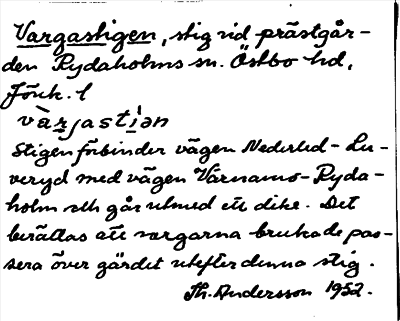 Vargastigen, stig vid prästgår-
den Rydaholms sn. Östbo hd,
Jönk. l
vàrjastìən
Stigen förbinder vägen Nederled - Lu-
veryd med vägen Värnamo - Ryda-
holm och går utmed ett dike. Det
berättas att vargarna brukade pas-
sera över gärdet utefter denna stig.
Th. Andersson 1952.